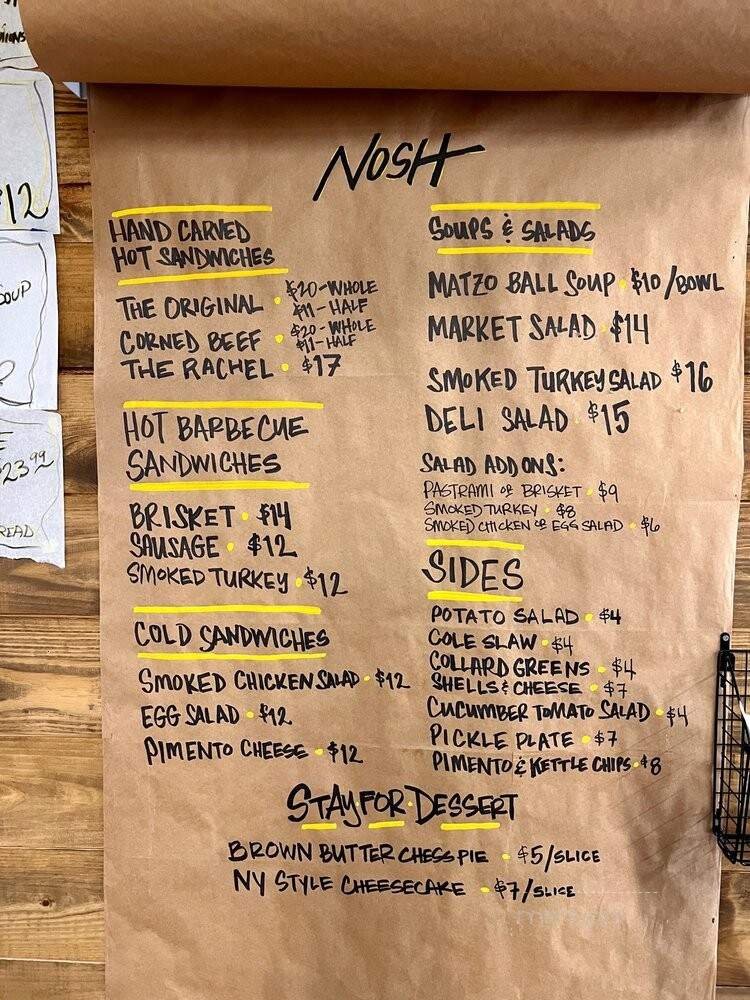 NOSH
HAND CARVED
HOT SANDWICHES
THE ORIGINAL · $20-WHOLE
$11-HALF
CORNED BEEF · $20-WHOLE
$11-HALF
THE RACHEL · $17
HOT BARBECUE
SANDWICHES
BRISKET · $14
SAUSAGE · $12
SMOKED TURKEY · $12
COLD SANDWICHES
SMOKED CHICKEN SALAD · $12
EGG SALAD · $12
PIMENTO CHEESE · $12
SOUPS & SALADS
MATZO BALL SOUP · $10/BOWL
MARKET SALAD · $14
SMOKED TURKEY SALAD $16
DELI SALAD · $15
SALAD ADD ONS:
PASTRAMI OR BRISKET · $9
SMOKED TURKEY · $8
SMOKED CHICKEN OR EGG SALAD · $6
SIDES
POTATO SALAD · $4
COLE SLAW · $4
COLLARD GREENS · $4
SHELLS & CHEESE · $7
CUCUMBER TOMATO SALAD · $4
PICKLE PLATE · $7
PIMENTO & KETTLE CHIPS · $8
STAY·FOR·DESSERT
BROWN BUTTER CHESS PIE · $5/SLICE
NY STYLE CHEESECAKE · $7/SLICE
12
SOUP
23.99
READ